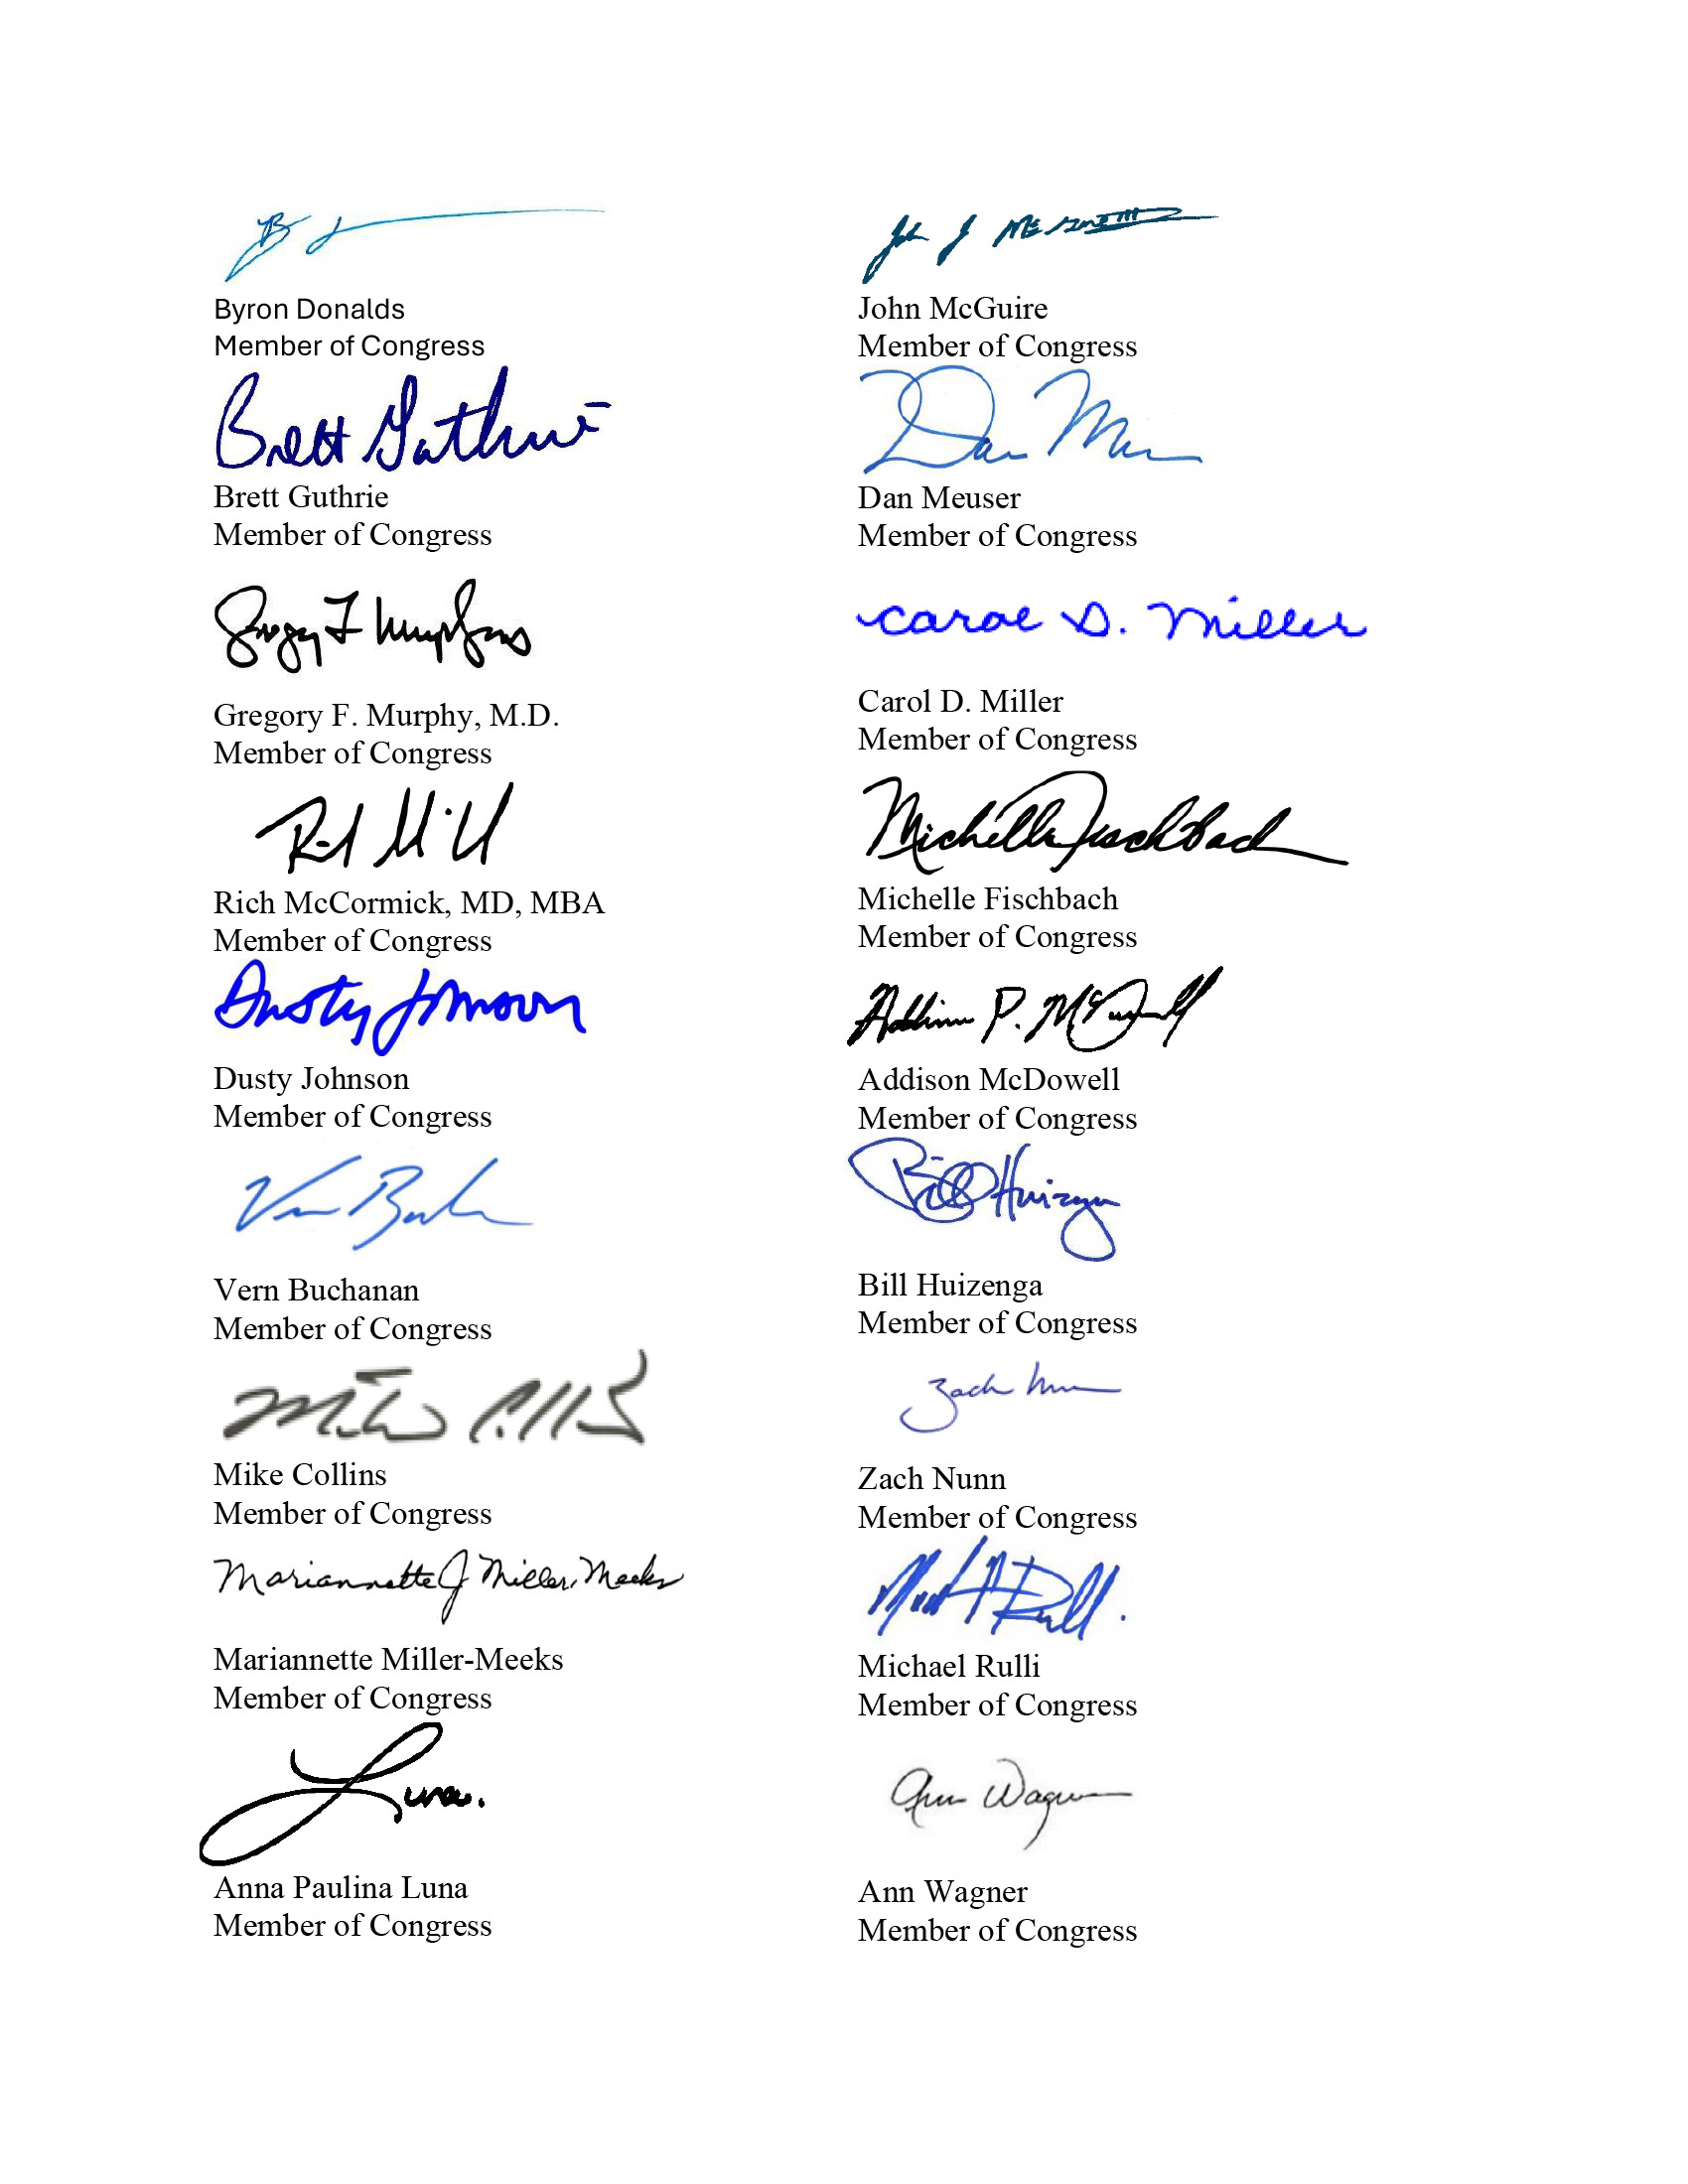 Byron Donalds
Member of Congress
John McGuire
Member of Congress
Brett Guthrie
Brett Guthrie
Member of Congress
Dan Meuser
Member of Congress
Gregory F. Murphy, M.D.
Member of Congress
Carol D. Miller
Carol D. Miller
Member of Congress
Rich McCormick, MD, MBA
Member of Congress
Michelle Fischbach
Michelle Fischbach
Member of Congress
Dusty Johnson
Dusty Johnson
Member of Congress
Addison McDowell
Member of Congress
Vern Buchanan
Member of Congress
Bill Huizenga
Bill Huizenga
Member of Congress
Mike Collins
Member of Congress
Zach Nunn
Member of Congress
Mariannette J Miller-Meeks
Mariannette Miller-Meeks
Member of Congress
Michael Rulli
Member of Congress
Luna.
Anna Paulina Luna
Member of Congress
Ann Wagner
Ann Wagner
Member of Congress